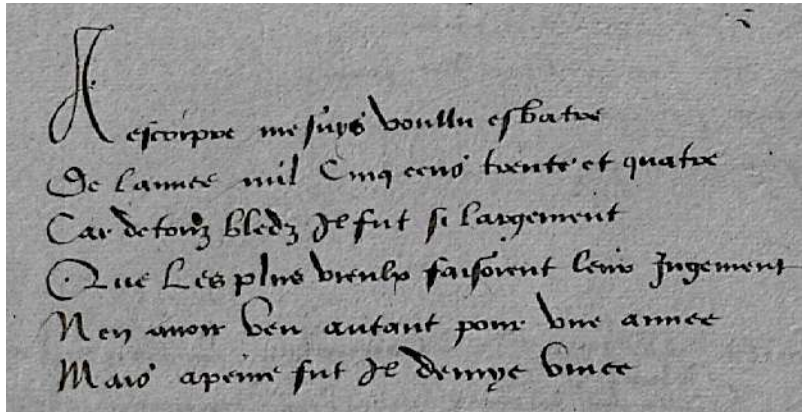 A escripre me suys voullu esbatre
De lannee mil Cinq cens trente et quatre
Car de tous bledz Il fut si largement
Que Les plus vieulx faisoient leur Jugement
N en avoir veu autant pour une annee
Mais a peine fut Il demye vinee